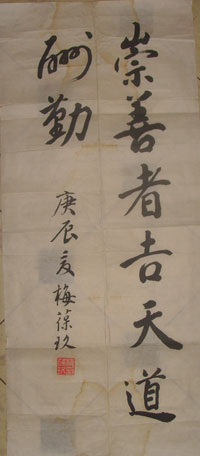 崇善者吉天道
酬勤
庚辰夏梅葆玖